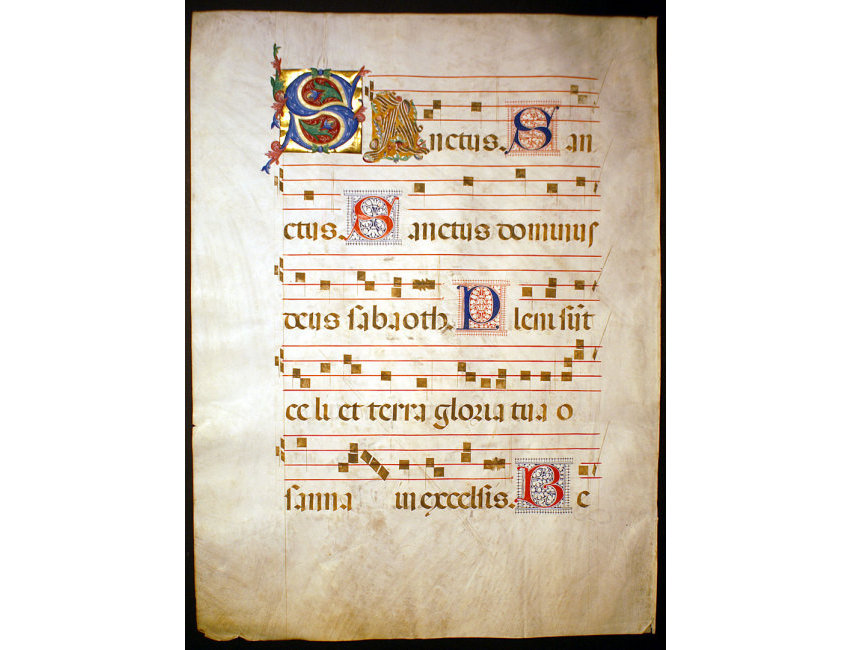 SAnctus. San
ctus. Sanctus dominus
deus sabaoth. Pleni sūt
celi et terra gloria tua o
sanna in excelsis. Be